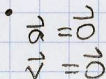 • a⃗ = 0⃗
v⃗ = 0⃗